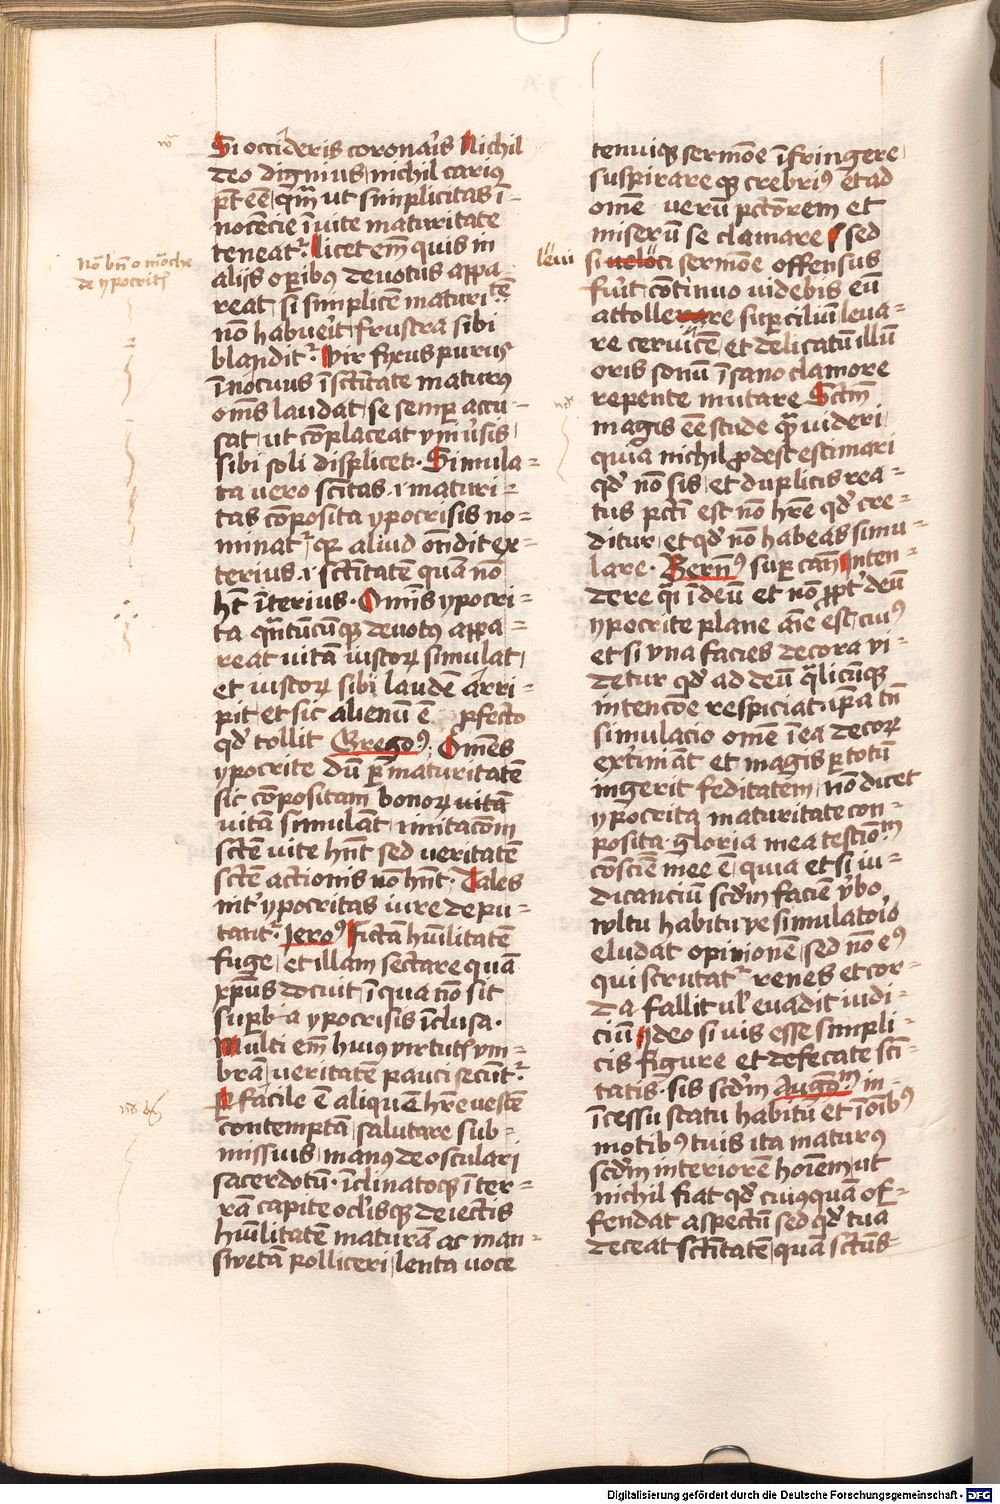 Si occideris coronaris Nichil
deo dignius nichil carius
pt̄ eē qm̄ ut simplicitas ī-
nocēcie ī uite maturitate
teneatr̄ licet em̄ quis in
alijs op̄ibus deuotus appa
reat si simplicē maturitē
nō habuerit frustra sibi
blandit᷑ Vir fixus purus
īnocuus ī sctītate maturus
om̄s laudat se semp accu-
sat ut cōplaceat ym̄ūsis
sibi soli displicet. Simula=
ta uero sctītas ı maturi-
tas cōposita ypocrisis no=
minat᷑ q aliud ostēdit ex-
terius ı sctītatē quā nō
ht īterius. Omīs ypocri-
ta qm̄tūcūq deuotus appa=
reat uitā iustoꝝ simulat
et iustoꝝ sibi laudē arri=
pit et sic alienū ē pfecto
qd tollit Gregoꝰ. Omēs
ypocrite dū p maturitatē
sic cōpositam bonoꝝ uitā
uitā simulāt imitacōm
sctē uite hn̄t sed ueritatē
sctē actionis nō hn̄t. Tales
int᷑ ypocritas iure depu-
tatit᷑ Jeroꝰ fictā hūilitatē
fuge et illam sectare quā
xp̄us docuit ī qua nō sit
supbia ypocrisis īclusa.
Multi em̄ huiꝰ uirtutis um=
brā ueritatē pauci secūt᷑
p facile ē aliquē hr̄e uestē
contemptā salutare sub-
missius manus deosculari
sacerdotū īclinatoq ī ter=
rā capite oclisq deiectis
hūilitatē maturā ac man=
swetā polliceri lenta uoce
tenuiq sermōe īfringere
suspirare q crebriꝰ et ad
omē uerū pctōrem et
miserū se clamare sed
si ueloci sermōe offensus
fuit continuo uidebis eū
attollere superciliū leua=
re ceruicē et delicatū illū
oris sonū īsano clamore
repente mutare Sctm̄
magis eē stude qm̄ uideri
quia nichil ꝓdest estimari
qd nō sis et duplicis rea-
tus pctī est nō hr̄e qd cre-
ditur et qd nō habeas simu-
lare. Bernꝰ sup cān̄ Inten-
dere qi ī deū et nō ꝓpt deū
ypocrite plane aīe est cuiꝰ
et si una facies decora ui-
detur qd ad deū qlicūq
intencōe respiciat ipa tn̄
simulacio omē ī ea decorē
extimāt et magis p totū
ingerit feditatem nō dicet
ypocrita maturitate con-
posita gloria mea testiōm
cōsciē mee ē quia et si iu-
dicanciū scdm faciē ỹbo
wltu habitu ye simulatoio
eludat opinionē sed nō eꝰ
qui scrutat᷑ renes et cor-
da fallit ul euadit iudi-
ciū Ideo si uis esse simpli-
cis figure et defecate scti-
tatis. sis scdm Augōm in-
īcessu statu habitū et ī oībꝰ
motibꝰ tuis ita maturꝰ
scdm interiorē hoīem ut
nichil fiat qd cuiusquā of-
fendat aspectū sed qd tua
deceat sctītatē quā sctūs
leui
Nō bn̄ o mōche
de ypocritis